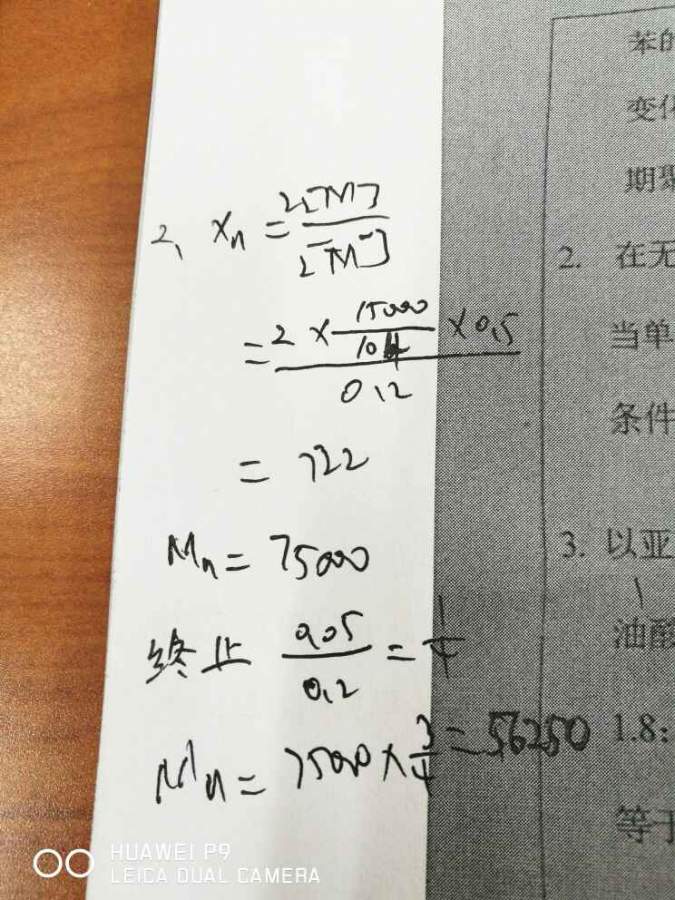 2、 Xn = 2[M] / [M⁻]
= 2 × 15000/104 × 0.5 / 0.2
= 722
Mn = 75000
终止 0.05/0.2 = 1/4
Mn = 75000 × 3/4 = 56250
苯的
变化
期聚
2. 在无
当单
条件
3. 以亚
油酸
1.8:
等于
HUAWEI P9
LEICA DUAL CAMERA